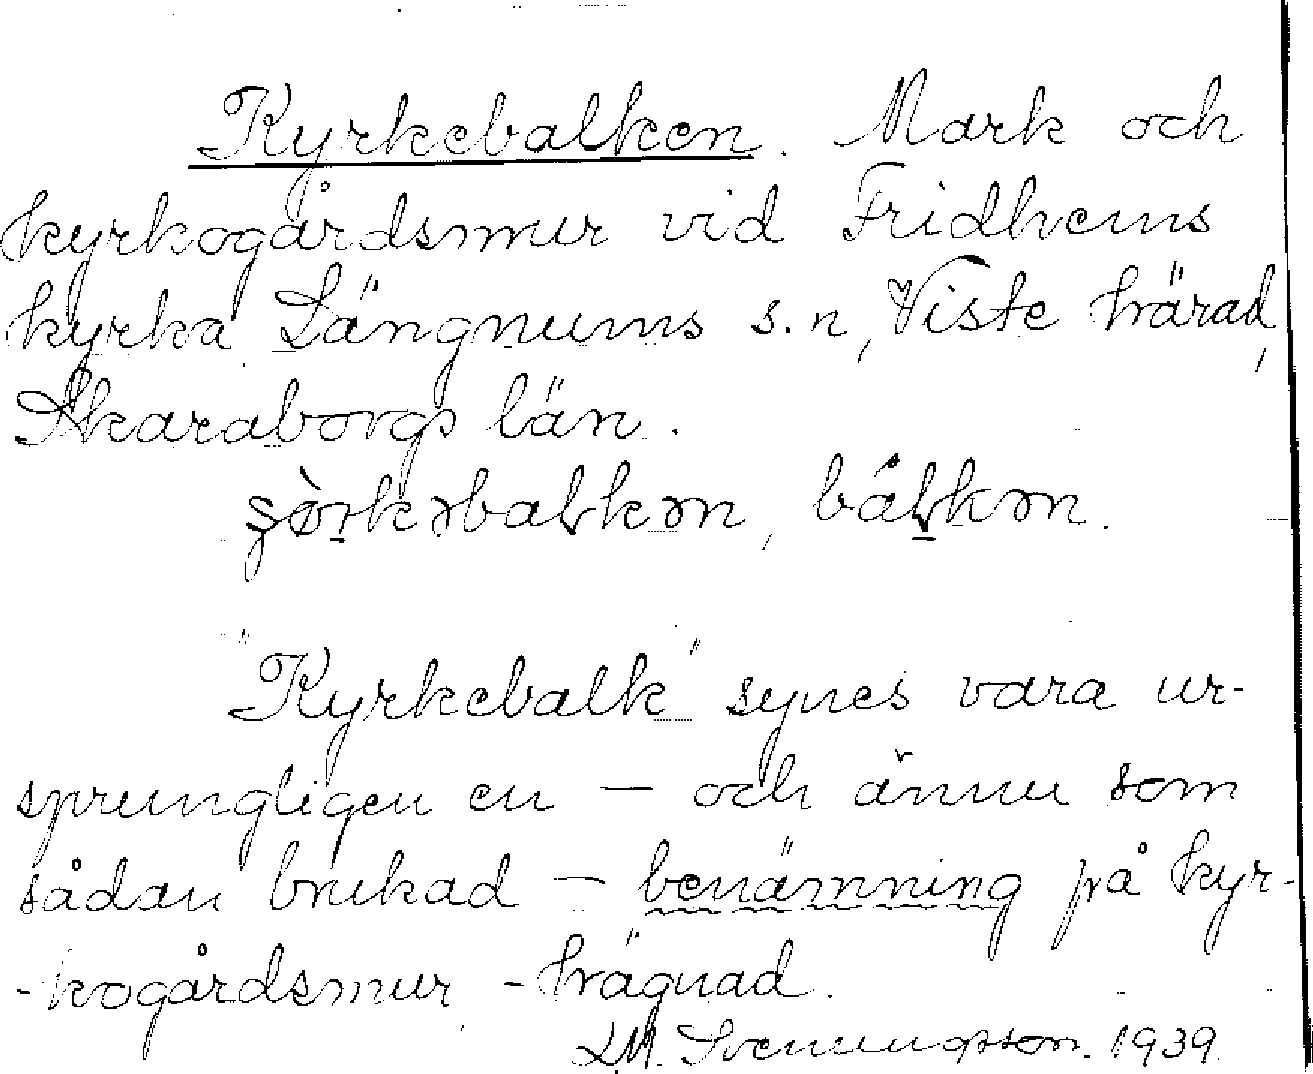 Kyrkebalken. Mark och
kyrkogårdsmur vid Fridhems
kyrka Längnums s.n, Viste härad,
Skaraborgs län.
"Kyrkebalk" synes vara ur-
sprungligen en — och ännu som
sådan brukad — benämning på kyr-
-kogårdsmur - hägnad.
LM. Svenungsson. 1939